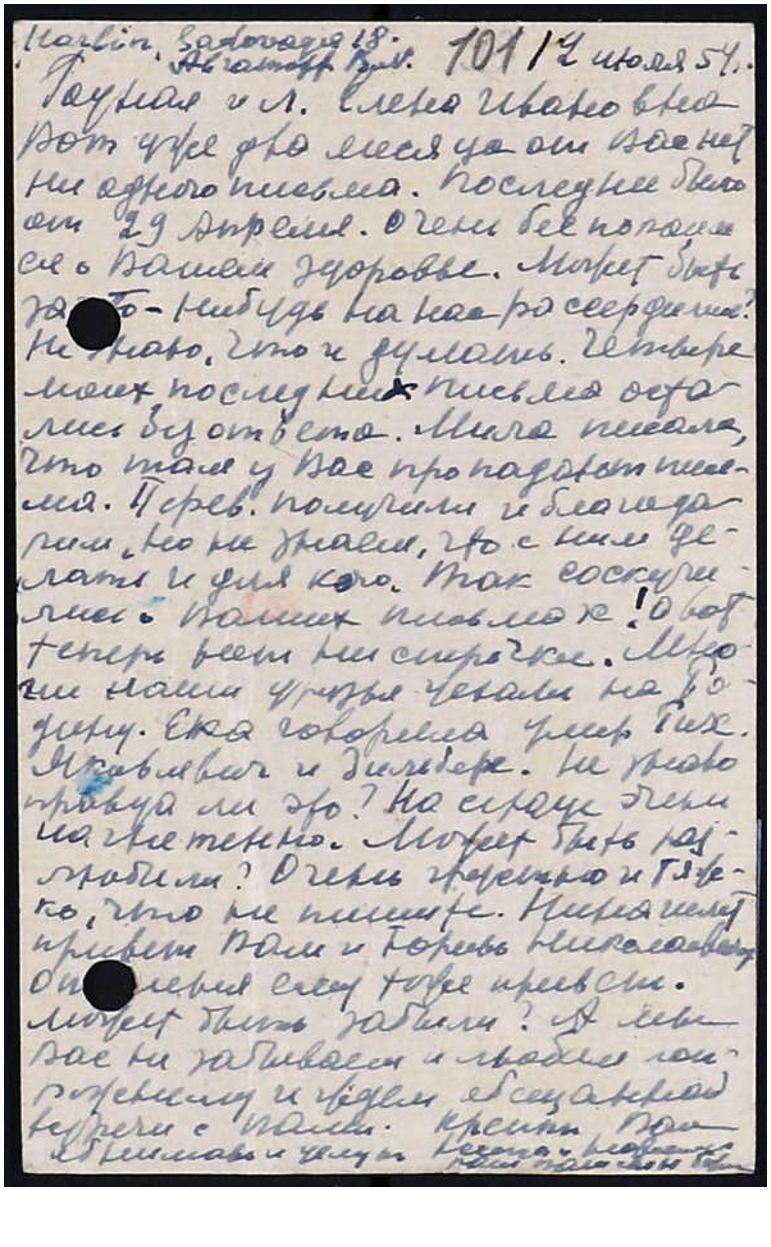 Harbin, Sadovaya 18.
101 / 2 июля 54.
Родная и л. Елена Ивановна
Вот уже два месяца от Вас нет
ни одного письма. Последнее было
от 29 Апреля. Очень беспокоим
ся о Вашем здоровье. Может быть
за то-нибудь на нас рассердились?
Не знаю, что и думать. Четыре
моих последних письма оста-
лись без ответа. Мила писала,
что там у Вас пропадают пись-
ма. II перев. получили и благода-
рим, но не знаем, что с ним де-
лать и для кого. Так соскучи-
лись о Ваших письмах! А вот
теперь нет ни строчки. Мно-
гие наши друзья уехали на Ро-
дину. Ека говорила умер Тих.
Яковлевич и Зильберс. Не знаю
правда ли это? На сердце очень
нагнетенно. Может быть раз-
любили? Очень грустно и тяж-
ко, что не пишите. Нина шлет
привет Вам и Борису Николаевичу
от меня ему тоже привет.
Может быть забыли? А мы
Вас не забываем и любим по-
прежнему и ждем обещанной
встречи с Вами. Крепко Вас
обнимаю и целую